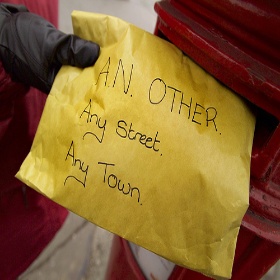 A.N. OTHER.
Any Street.
Any Town.